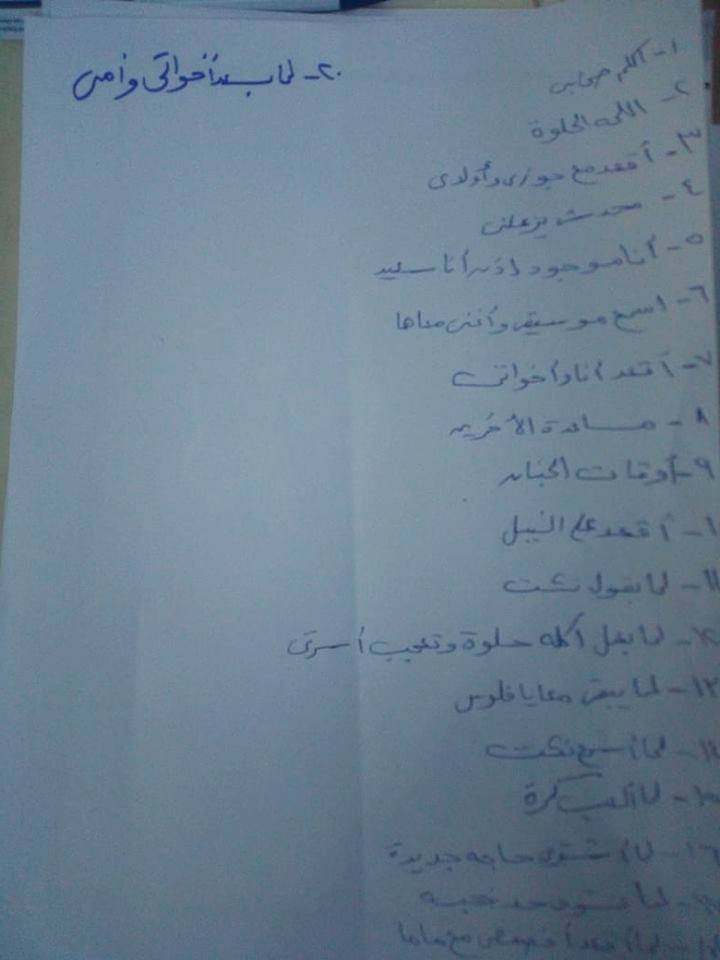 ١- أكلم صحابى
٢- اللمه الحلوة
٣- أقعد مع جوزى وأولادى
٤- محدش يزعلنى
٥- أنا موجود إذن أنا سعيد
٦- اسمع موسيقى وأغنى معاها
٧- أقعد أنا وأخواتى
٨- مساعدة الأخرين
٩- أوقات الجنان
١٠- أقعد على النيل
١١- لما بقول نكت
١٢- لما بعمل أكله حلوة وتعجب أسرتى
١٣- لما يبقى معايا فلوس
١٤- لما أسمع نكت
١٥- لما ألعب كرة
١٦- لما اشترى حاجه جديدة
١٧- لما حد
١٨- لما أقعد مع ماما
٢٠- لما أخواتى وأمى